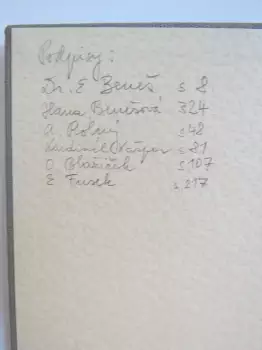 Podpisy:
Dr. E Beneš s 8
Hana Benešová 324
A. Polný s 48
s 81
O Blažíček s, 107
E Fusek s, 217